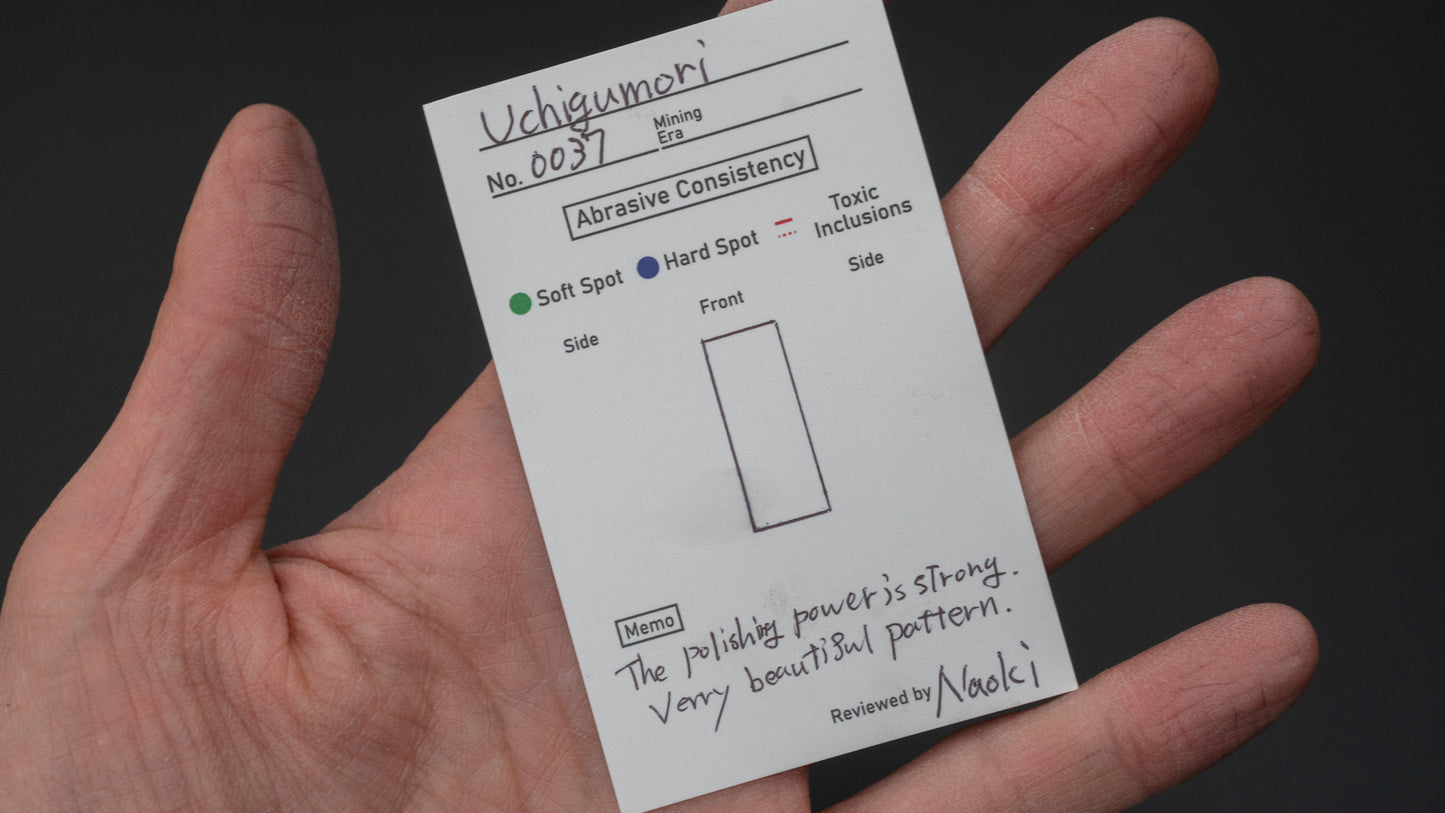 Uchigumori
No. 0037 Mining Era
Abrasive Consistency
Soft Spot Hard Spot Toxic Inclusions
Side Front Side
Memo
The polishing power is strong.
Verry beautiful pattern.
Reviewed by Naoki